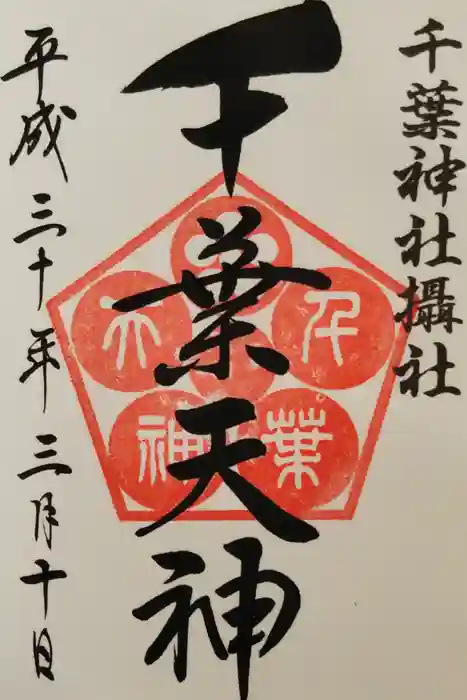 千葉神社攝社
千葉天神
千葉天神
平成三十年三月十日